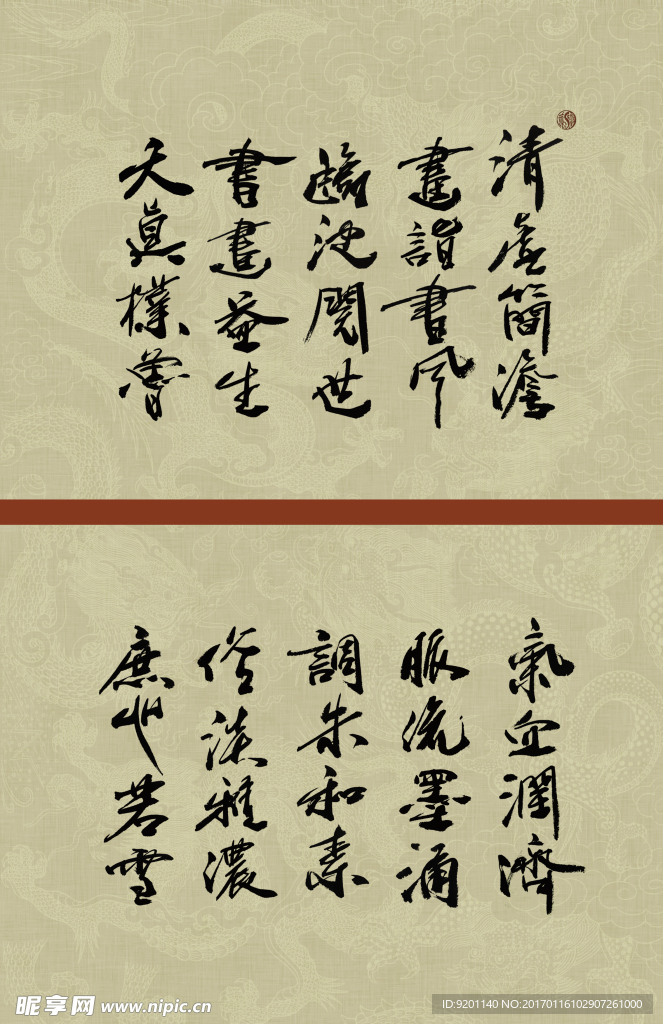 清虛簡澹
畫詣書風
臨池閱世
書畫益生
天真樸魯
氣血潤濟
脈流墨涌
調朱和素
俗淡雅濃
庶心若雪
昵享网 www.nipic.cn
ID:9201140 NO:20170116102907261000